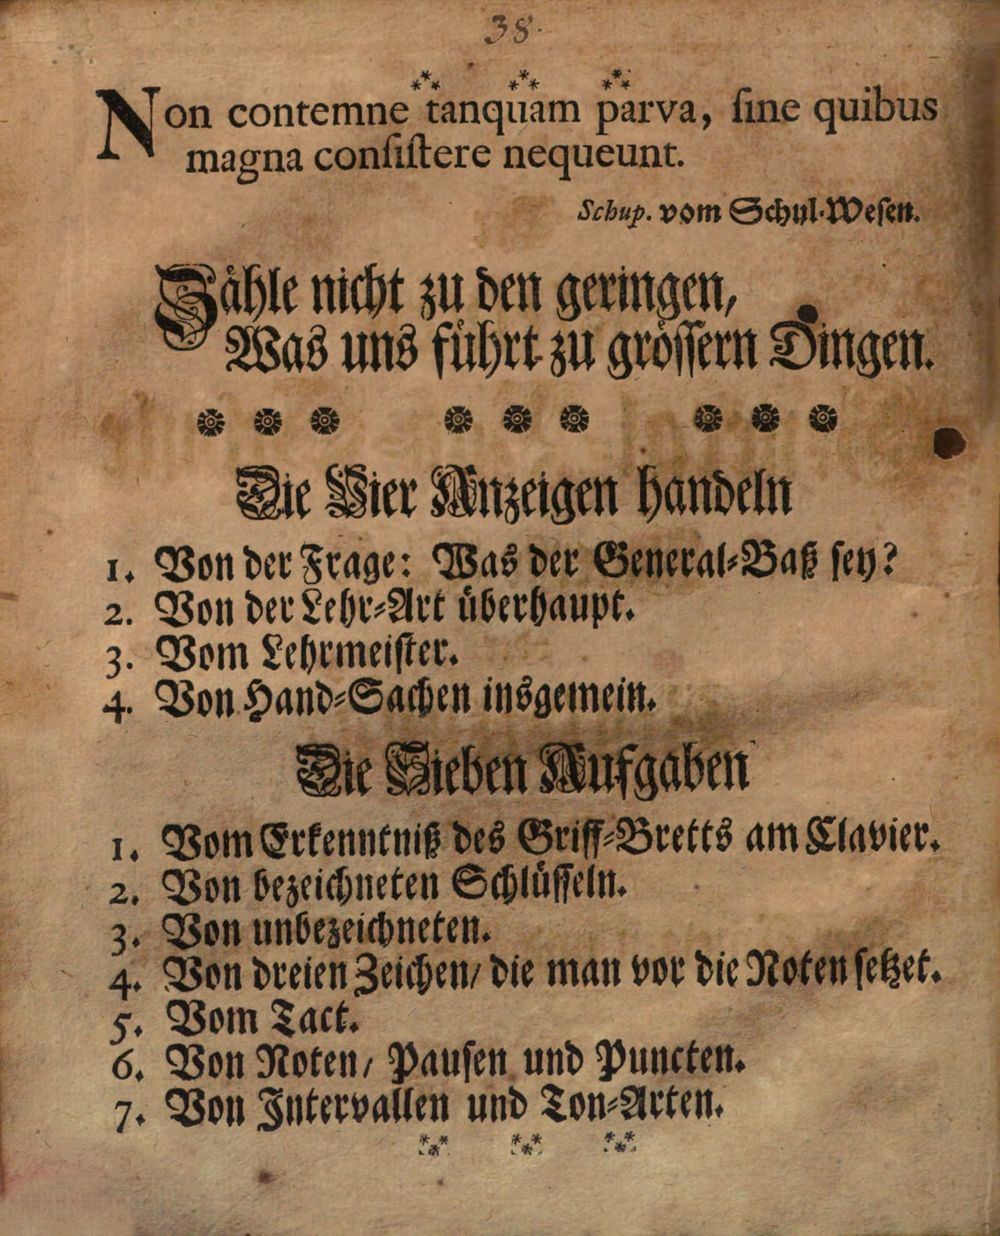 38.
Non contemne tanquam parva, ſine quibus
magna conſiſtere nequeunt.
Schup. vom Schul-Weſen.
Zähle nicht zu den geringen,
Was uns führt zu gröſſern Dingen.
Die Vier Anzeigen handeln
1. Von der Frage: Was der General-Baß ſey?
2. Von der Lehr-Art überhaupt.
3. Vom Lehrmeiſter.
4. Von Hand-Sachen insgemein.
Die Sieben Aufgaben
1. Vom Erkenntniß des Griff-Bretts am Clavier.
2. Von bezeichneten Schlüſſeln.
3. Von unbezeichneten.
4. Von dreien Zeichen/ die man vor die Noten ſetzet.
5. Vom Tact.
6. Von Noten/ Pauſen und Puncten.
7. Von Intervallen und Ton-Arten.